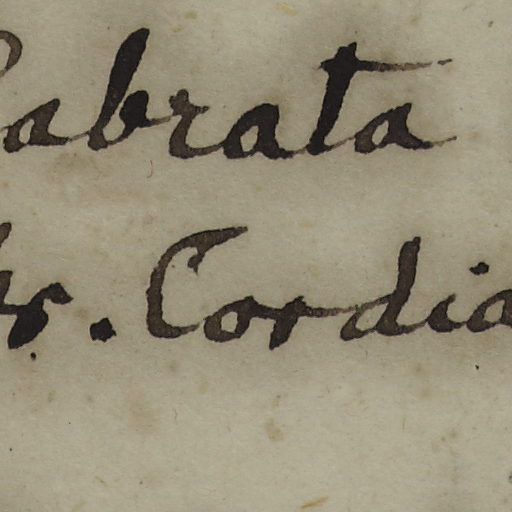 abrata
r. Cordia